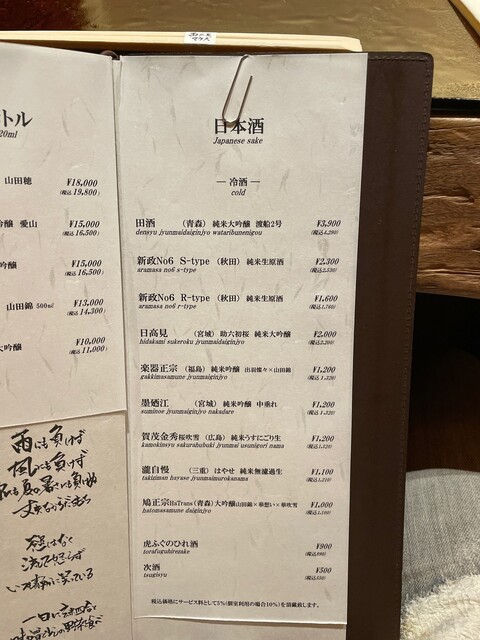 トル
20ml
山田穂 ¥18,000
(税込 19,800)
愛山 ¥15,000
(税込 16,500)
吟醸 ¥15,000
(税込 16,500)
山田錦 500ml ¥13,000
(税込 14,300)
大吟醸 ¥10,000
(税込 11,000)
雨にも負けず
風にも負けず
日本酒
Japanese sake
― 冷酒 ―
cold
田酒 (青森) 純米大吟醸 渡船2号 ¥3,900
densyu jyunmaidaiginjyo wataribunenigou (税込4,290)
新政No6 S-type (秋田) 純米生原酒 ¥2,300
aramasa no6 s-type (税込2,530)
新政No6 R-type (秋田) 純米生原酒 ¥1,600
aramasa no6 r-type (税込1,760)
日高見 (宮城) 助六初桜 純米大吟醸 ¥2,000
hidakami sukeroku jyunmaidaiginjyo (税込2,200)
楽器正宗 (福島) 純米吟醸 出羽燦々×山田錦 ¥1,200
gakkimasamune jyunmaiginjyo (税込1,320)
墨廼江 (宮城) 純米吟醸 中垂れ ¥1,200
suminoe jyunmaiginjyo nakadare (税込1,320)
賀茂金秀桜吹雪 (広島) 純米うすにごり生 ¥1,200
kamokinsyu sakurahubuki jyunmai usunigori nama (税込1,320)
瀧自慢 (三重) はやせ 純米無濾過生 ¥1,100
takijiman hayase jyunmaimurokanama (税込1,210)
鳩正宗HaTrans(青森)大吟醸山田錦×華想い×華吹雪 ¥1,000
hatomasamune daiginjyo (税込1,100)
虎ふぐのひれ酒 ¥900
torafuguhirezake (税込990)
次酒 ¥500
tsugisyu (税込550)
税込価格にサービス料として5%(個室利用の場合10%)を頂戴致します。